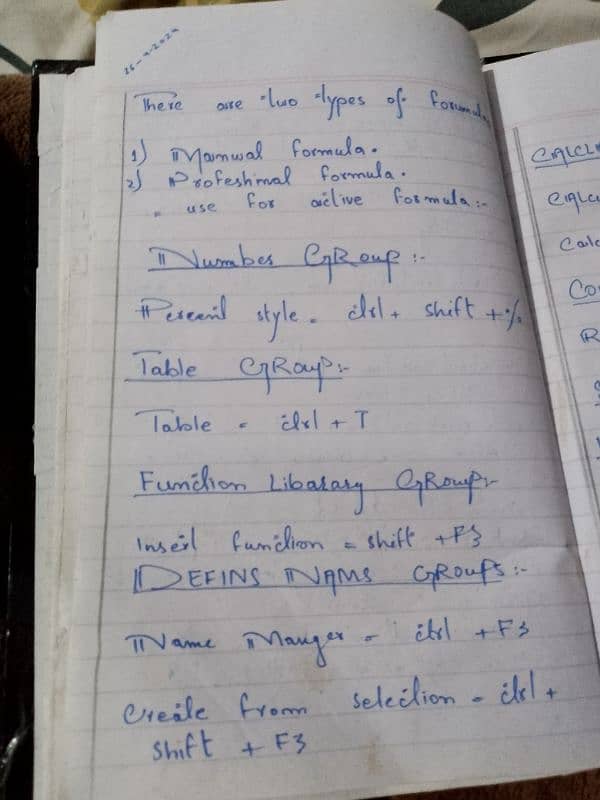 26-4-2024
There are two types of formula
1) Manwal formula.
2) Profeshinal formula.
= use for active formula:-
Number GRoup :-
Percent style = ctrl + shift + %
Table GRoup:-
Table = ctrl + T
Function Libarary GRoup:-
Insert function = shift + F3
DEFINS NAMS GROUPS:-
Name Manger = ctrl + F3
Create from selection = ctrl +
shift + F3
CALCUL
CALCU
Calc
CO
R